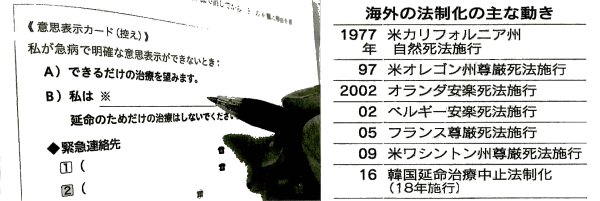 《意思表示カード(控え)》
私が急病で明確な意思表示ができないとき:
A)できるだけの治療を望みます。
B)私は ※
延命のためだけの治療はしないでくださ
◆緊急連絡先
1 (
☎
2 (
海外の法制化の主な動き
1977年 米カリフォルニア州自然死法施行
97 米オレゴン州尊厳死法施行
2002 オランダ安楽死法施行
02 ベルギー安楽死法施行
05 フランス尊厳死法施行
09 米ワシントン州尊厳死法施行
16 韓国延命治療中止法制化
(18年施行)